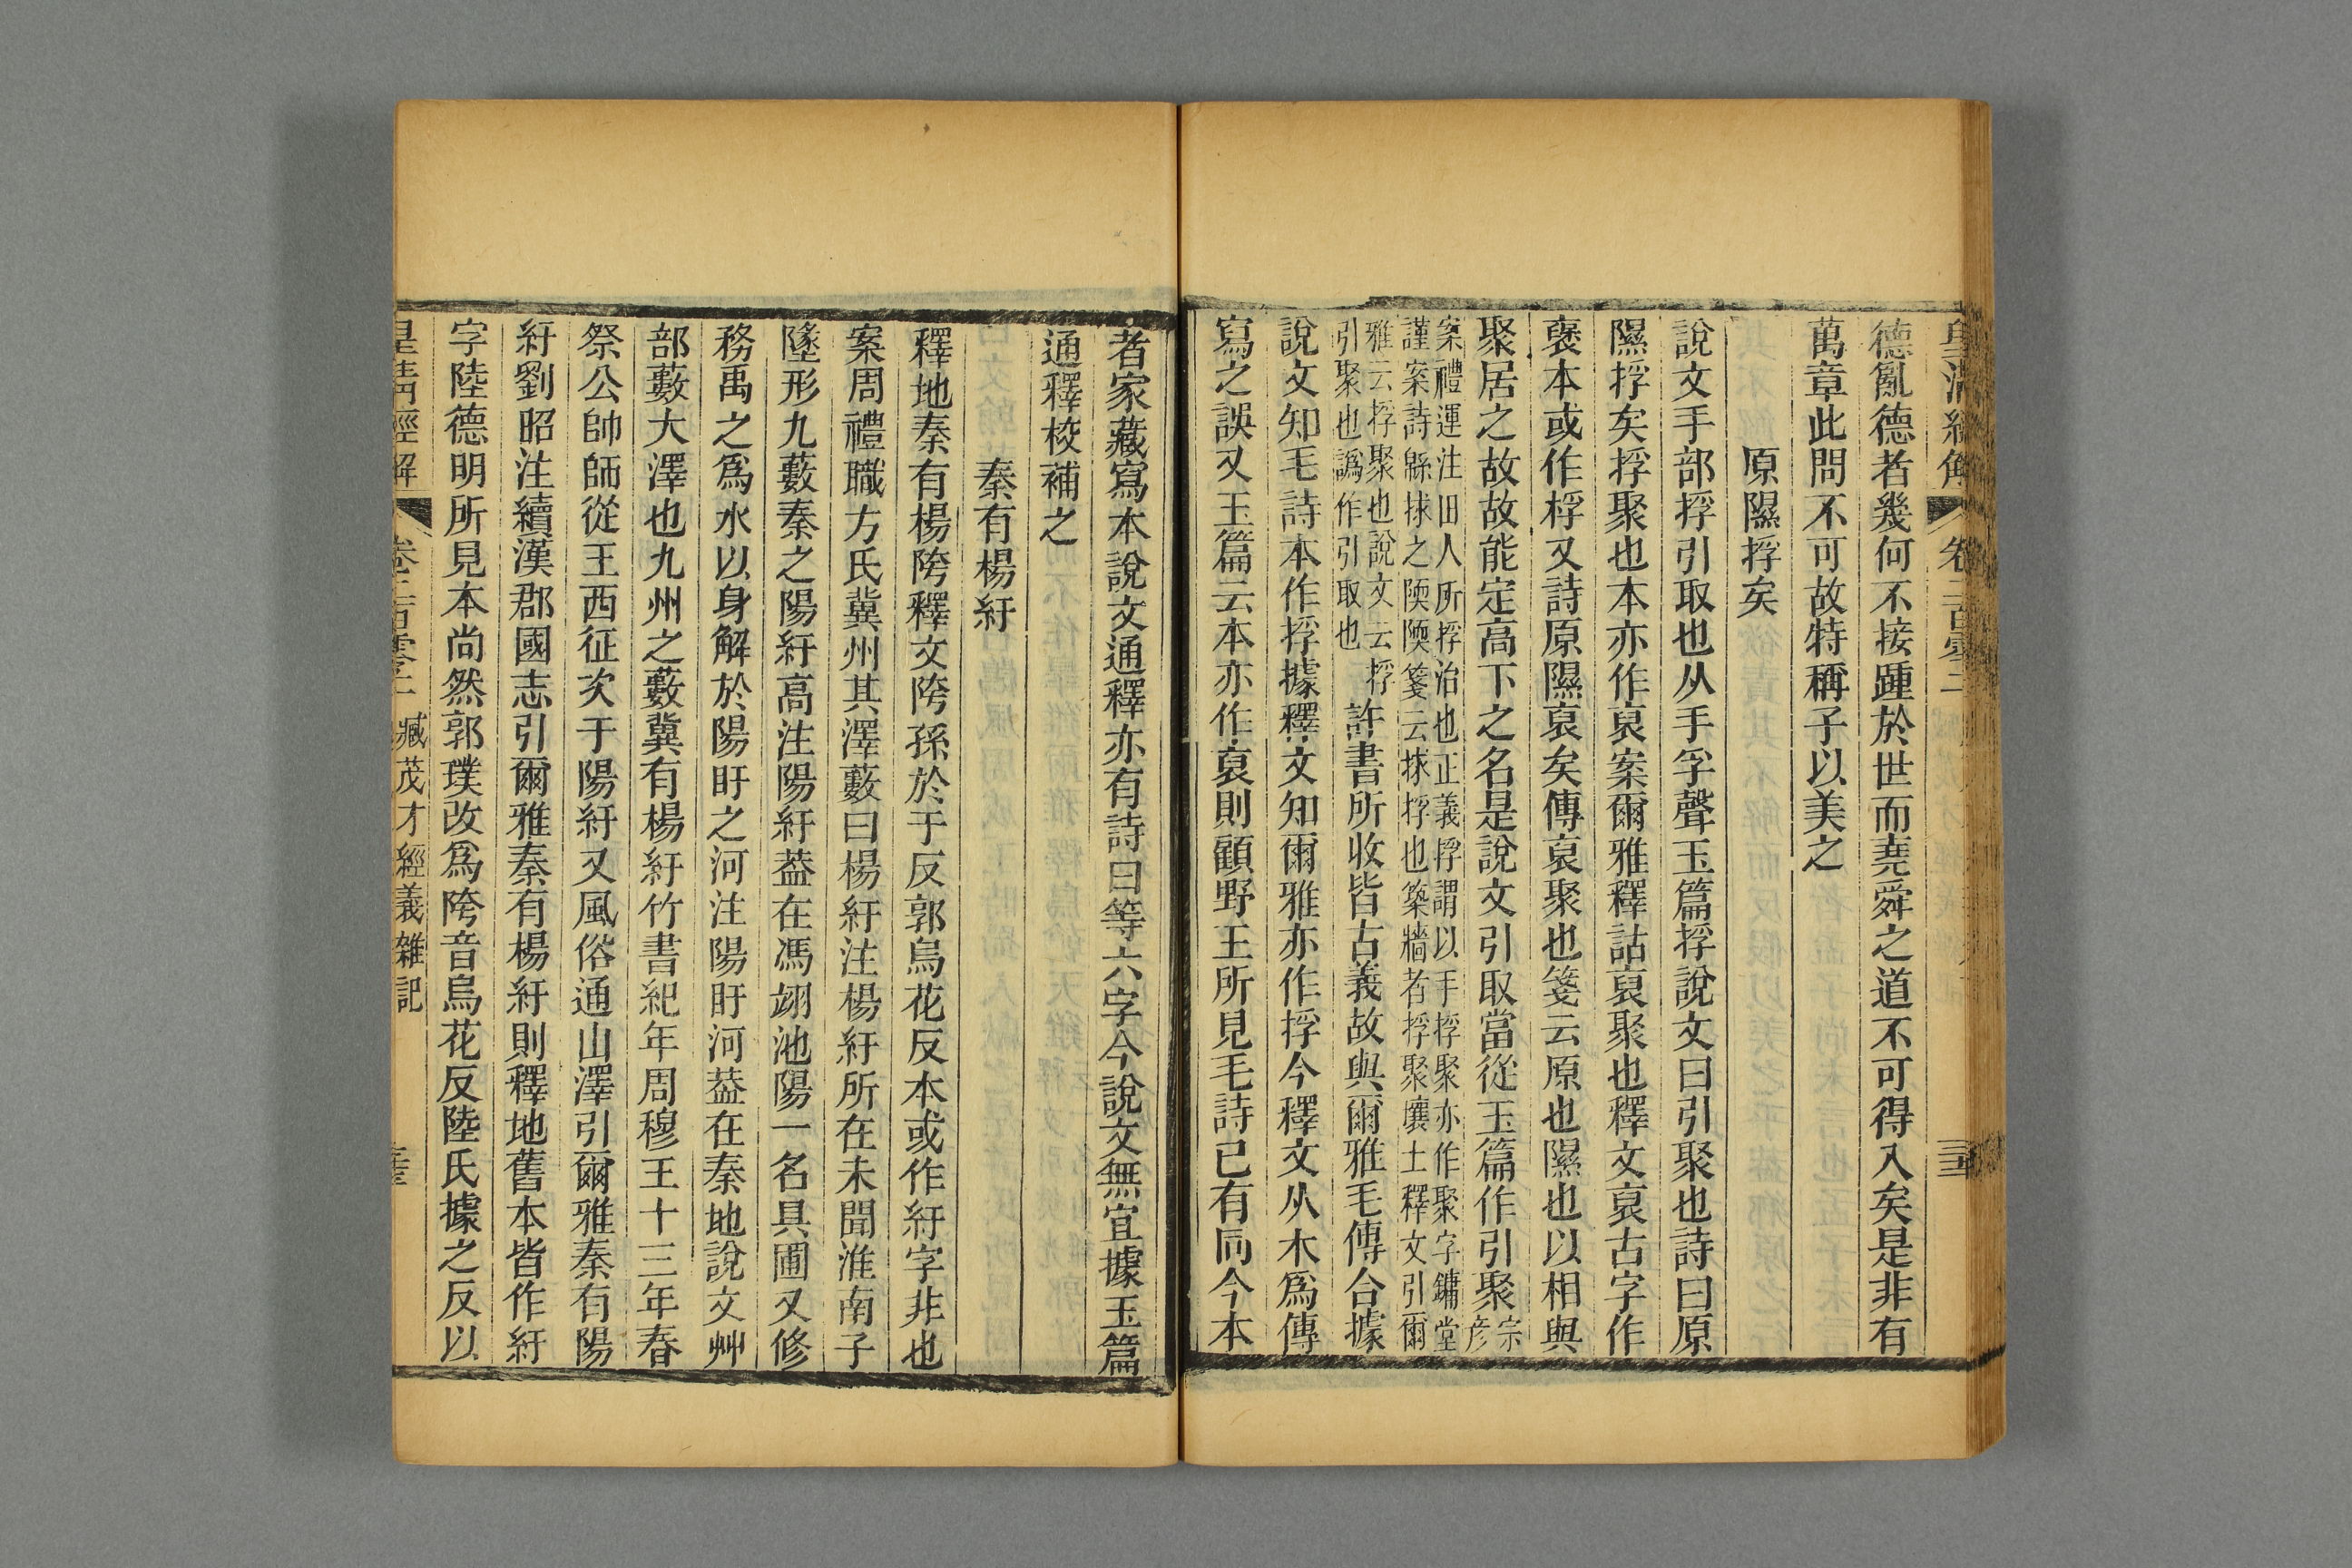 皇清經解 卷二百零二
德亂德者幾何不接踵於世而堯舜之道不可得入矣是非有
萬章此問不可故特稱子以美之
原隰捊矣
說文手部捊引取也从手孚聲玉篇捊說文曰引聚也詩曰原
隰捊矣捊聚也本亦作裒案爾雅釋詁裒聚也釋文裒古字作
褎本或作桴又詩原隰裒矣傳裒聚也箋云原也隰也以相與
聚居之故故能定高下之名是說文引取當從玉篇作引聚宗彥
案禮運注田人所捊治也正義捊謂以手捊聚亦作聚字鏞堂
謹案詩緜捄之陾陾箋云捄捊也築牆者捊聚壤土釋文引爾
雅云捊聚也說文云捊
引聚也譌作引取也許書所收皆古義故與爾雅毛傳合據
說文知毛詩本作捊據釋文知爾雅亦作捊今釋文从木爲傳
寫之誤又玉篇云本亦作裒則顧野王所見毛詩已有同今本
者家藏寫本說文通釋亦有詩曰等六字今說文無宜據玉篇
通釋校補之
秦有楊紆
釋地秦有楊陓釋文陓孫於于反郭烏花反本或作紆字非也
案周禮職方氏冀州其澤藪曰楊紆注楊紆所在未聞淮南子
墬形九藪秦之陽紆高注陽紆葢在馮翊池陽一名具圃又修
務禹之爲水以身解於陽盱之河注陽盱河葢在秦地說文艸
部藪大澤也九州之藪冀有楊紆竹書紀年周穆王十三年春
祭公帥師從王西征次于陽紆又風俗通山澤引爾雅秦有陽
紆劉昭注續漢郡國志引爾雅秦有楊紆則釋地舊本皆作紆
字陸德明所見本尚然郭璞改爲陓音烏花反陸氏據之反以
皇清經解 卷二百零二 臧茂才經義雜記